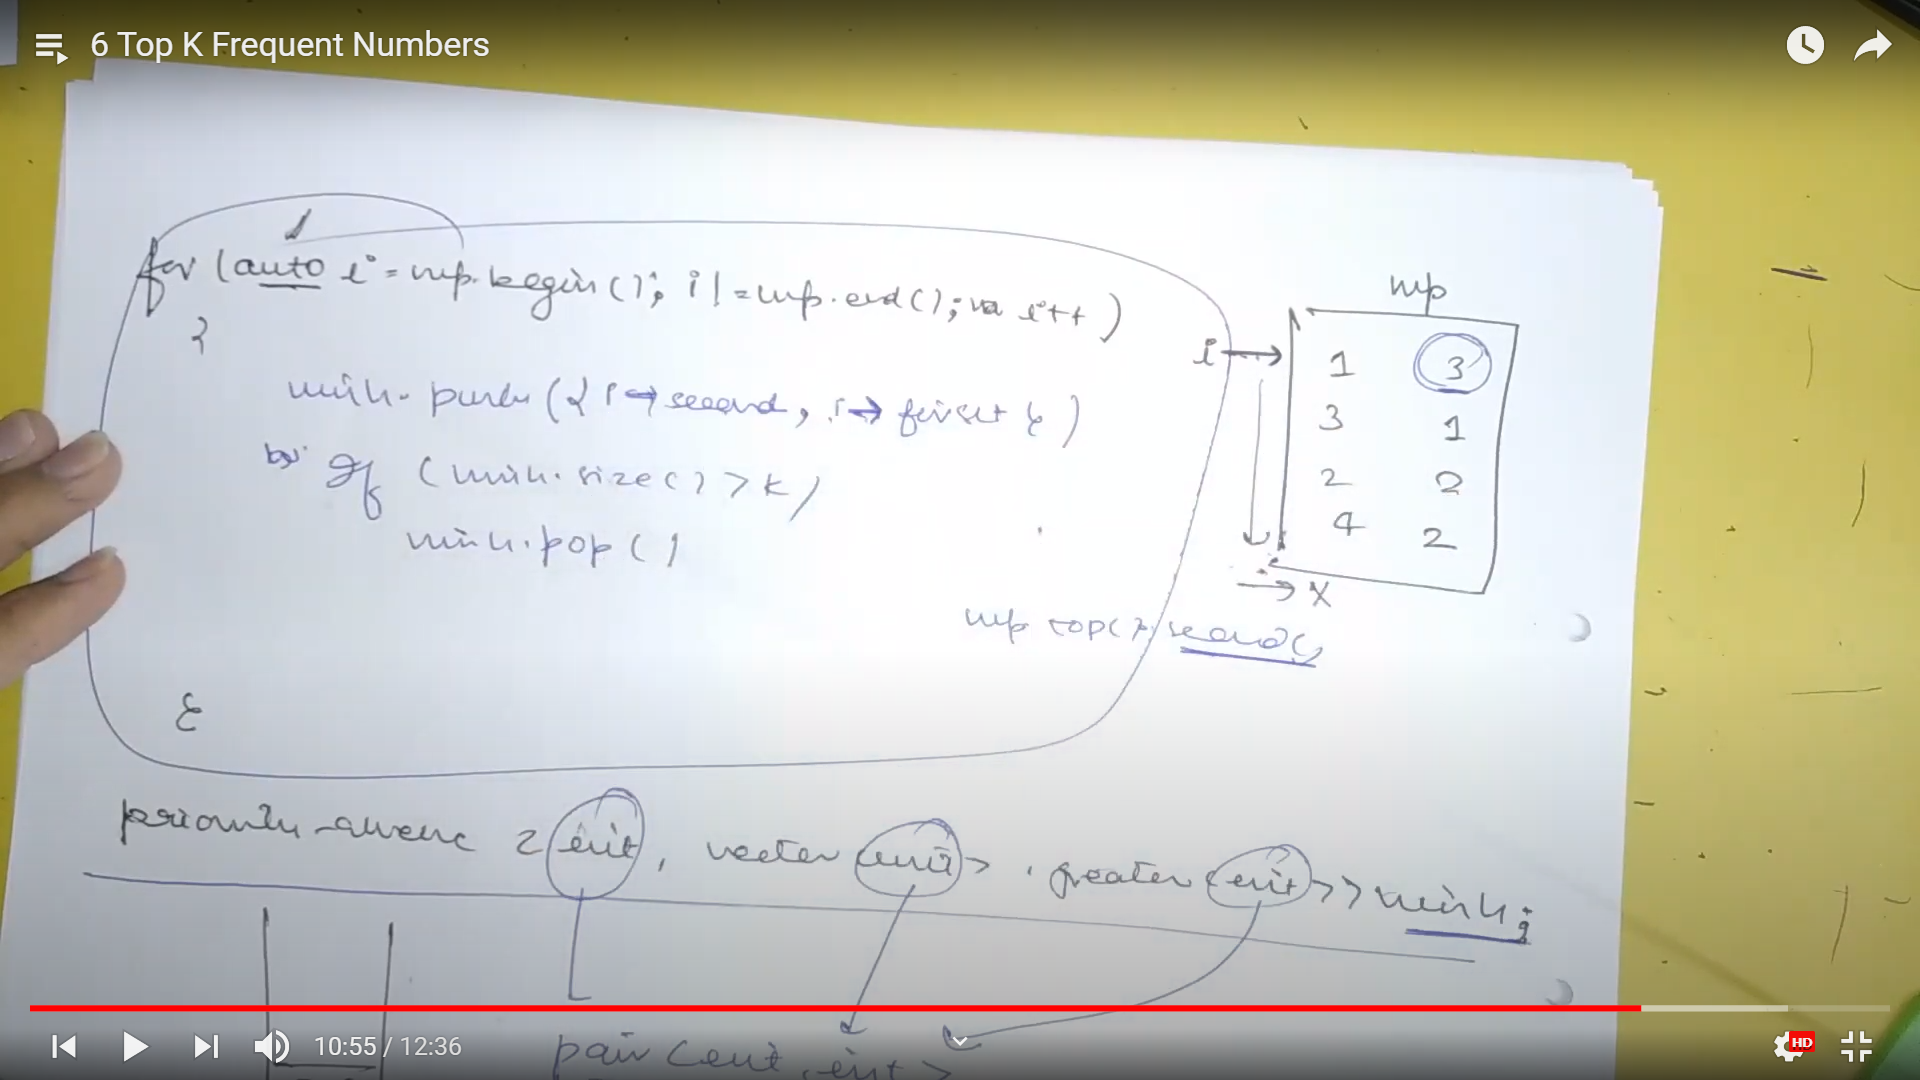 6 Top K Frequent Numbers
for (auto i = mp.begin(); i != mp.end(); i++)
{
minh.push({i→second, i→first})
if (minh.size() > k)
minh.pop()
}
mp
i→
1 3
3 1
2 2
4 2
→ X
mp top().second()
priority-queue <int, vector<int>, greater<int>> minh;
pair<int, int>
10:55 / 12:36
HD